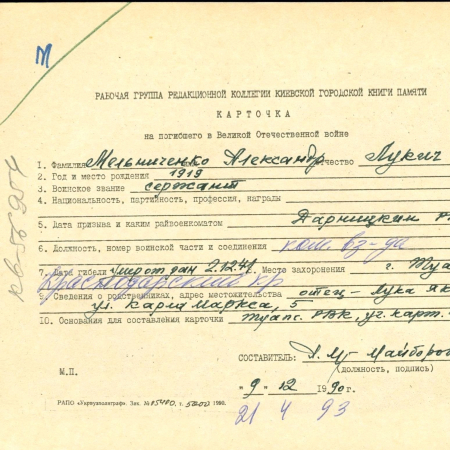 М
РАБОЧАЯ ГРУППА РЕДАКЦИОННОЙ КОЛЛЕГИИ КИЕВСКОЙ ГОРОДСКОЙ КНИГИ ПАМЯТИ
КАРТОЧКА
на погибшего в Великой Отечественной войне
1. Фамилия Мельниченко Александр отчество Лукич
2. Год и место рождения 1919
3. Воинское звание сержант
4. Национальность, партийность, профессия, награды
5. Дата призыва и каким райвоенкоматом Дарницким
6. Должность, номер воинской части и соединения ком. вз-да
7. Дата гибели 2.12.41. Место захоронения г. Туа
Краснодарский кр
9. Сведения о родственниках, адрес местожительства отец - Лука Як
ул. Карла Маркса, 5
10. Основания для составления карточки Туапс. РВК, уч. карт.
СОСТАВИТЕЛЬ:
(должность, подпись)
М.П.
"9" 12 1990 г.
21 4 93
РАПО «Укрвузполиграф». Зак. №
1990.